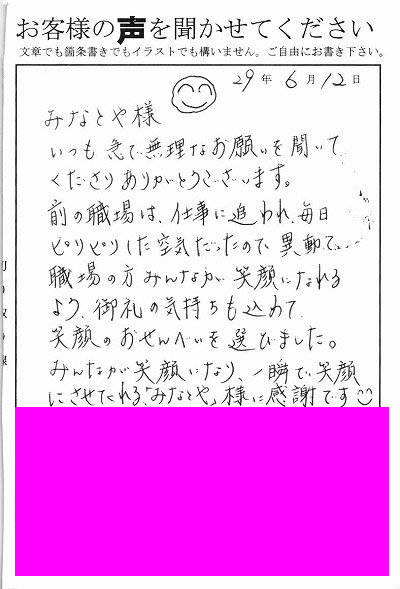 お客様の声を聞かせてください
文章でも箇条書きでもイラストでも構いません。ご自由にお書き下さい。
29年6月12日
みなとや様
いつも急で無理なお願いを聞いて
くださりありがとうございます。
前の職場は、仕事に追われ、毎日
ピリピリした空気だったので、異動で、
職場の方みんなが笑顔になれる
よう、御礼の気持ちも込めて、
笑顔のおせんべいを選びました。
みんなが笑顔になり、一瞬で、笑顔
にさせてくれる「みなとや」様に感謝です